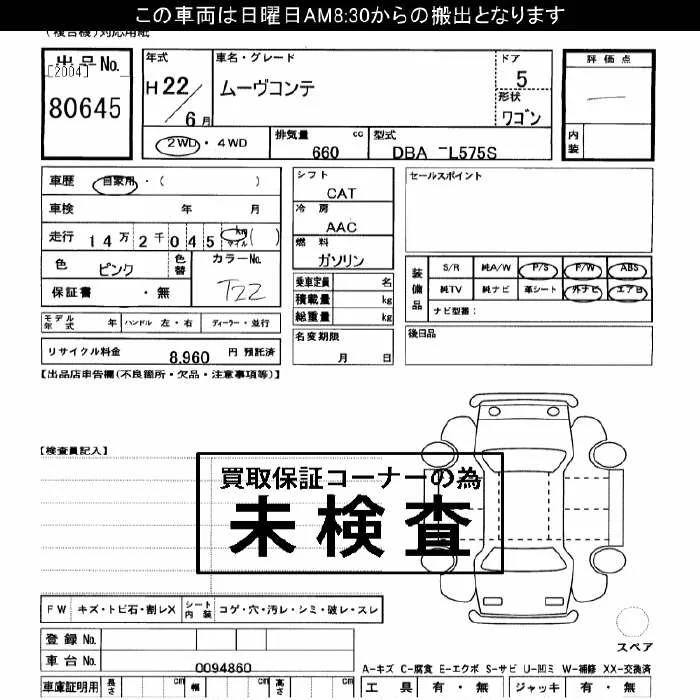 この車両は日曜日AM8:30からの搬出となります
(複合機)対応用紙
出品No.
[2004]
80645
年式
H22/6月
車名・グレード
ムーヴコンテ
ドア
5
形状
ワゴン
評価点
内装
2WD・4WD
排気量 cc
660
型式
DBA -L575S
車歴 自家用・( )
車検 年 月
走行 14万2千045 km マイル ( )
色 ピンク
色替
カラーNo.
T22
保証書 ・無
モデル年式 年
ハンドル 左・右
ディーラー・並行
リサイクル料金 8,960 円 預託済
シフト
CAT
冷房
AAC
燃料
ガソリン
乗車定員 名
積載量 kg
総重量 kg
名変期限
月 日
セールスポイント
装備品
S/R 純A/W P/S P/W ABS
純TV 純ナビ 革シート 外ナビ エアB
ナビ型番:
後日品
【出品店申告欄(不良箇所・欠品・注意事項等)】
【検査員記入】
買取保証コーナーの為
未検査
FW キズ・トビ石・割レX
シート内装 コゲ・穴・汚レ・シミ・破レ・スレ
登録No.
車台No.
0094860
車庫証明用 長さ cm 幅 cm 高さ cm
スペア
A-キズ C-腐食 E-エクボ S-サビ U-凹ミ W-補修 XX-交換済
工具 有・無 ジャッキ 有・無